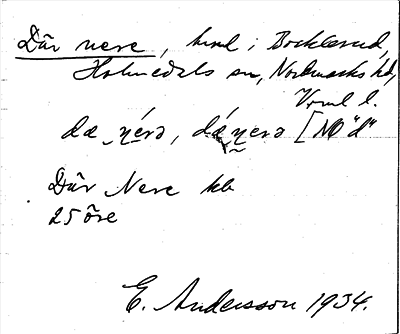 Där nere, hmd i Bocklerud,
Holmedals sn, Nordmarks hd,
Vrml l.
dæ nérə, dá nerə [NB "d"
Där Nere hb
25 öre
E. Andersson 1934.